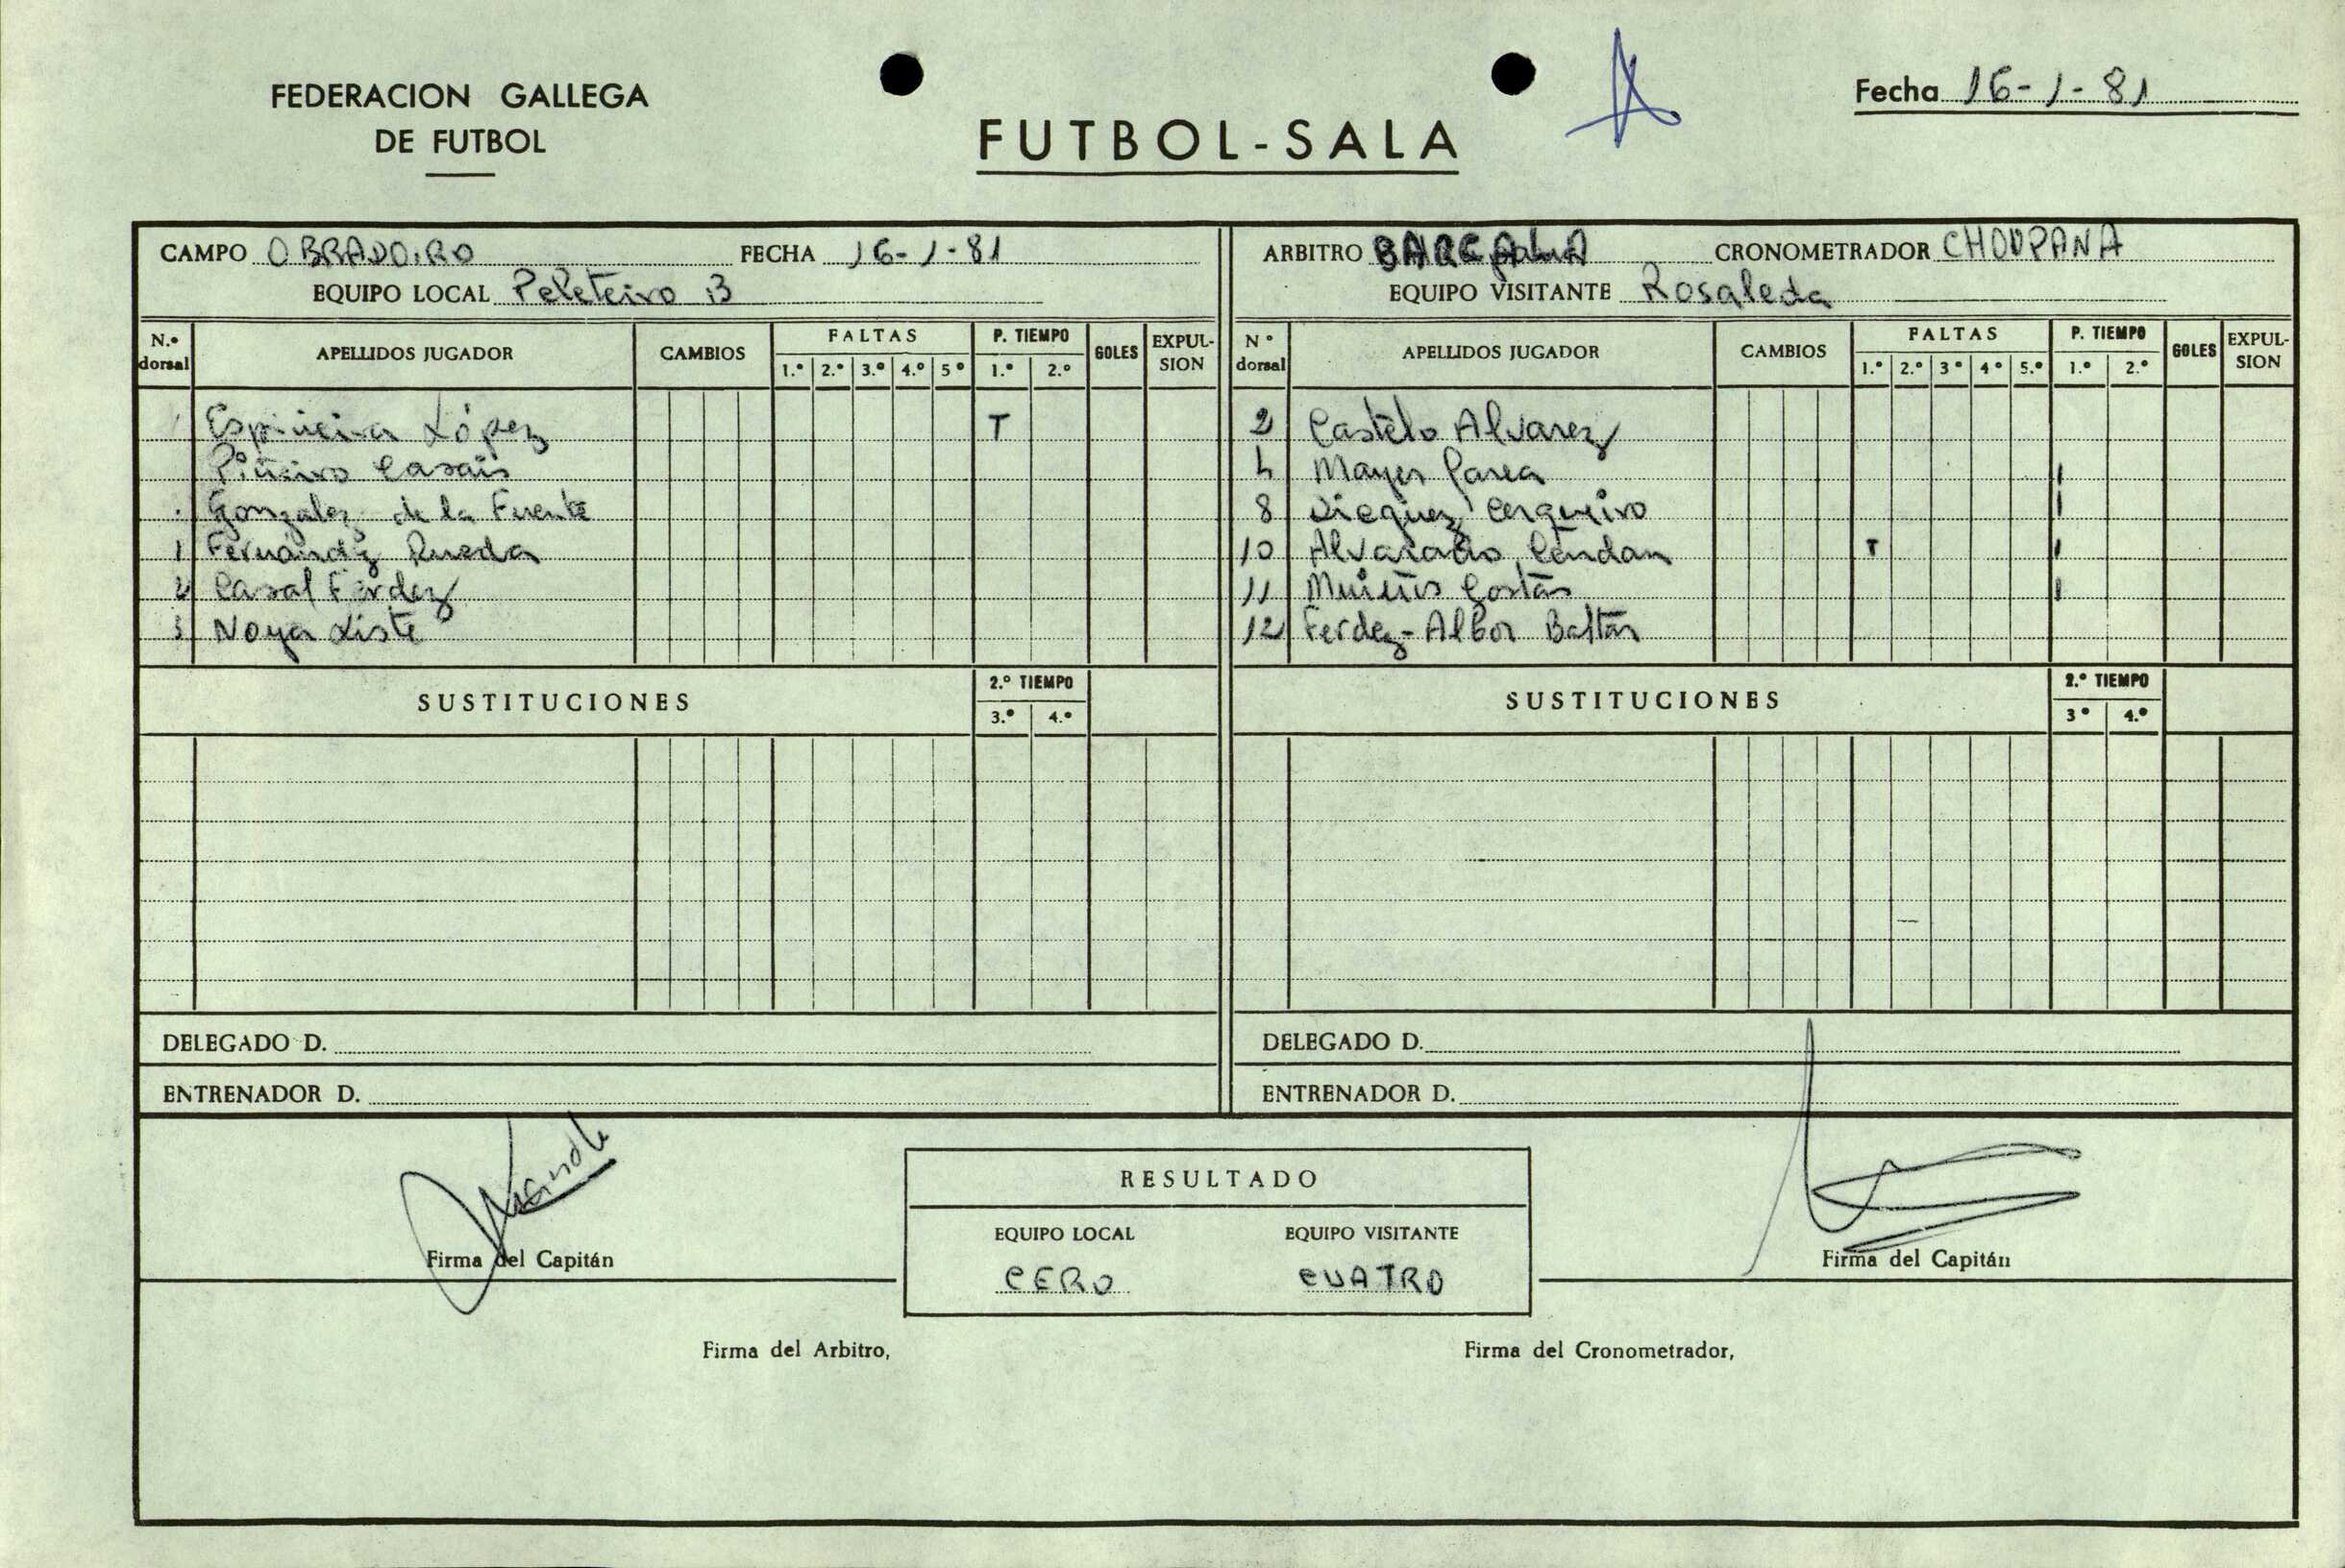 FEDERACION GALLEGA
DE FUTBOL
FUTBOL-SALA
Fecha 16-1-81
CAMPO OBRADOIRO FECHA 16-1-81
EQUIPO LOCAL Peleteiro B
N.º dorsal APELLIDOS JUGADOR CAMBIOS FALTAS 1.º 2.º 3.º 4.º 5º P. TIEMPO 1.º 2.º GOLES EXPULSION
Espiñeira López T
Piñeiro Casais
Gonzalez de la Fuente
1 Fernández Rueda
2 Casal Ferdez
3 Noya Liste
SUSTITUCIONES 2.º TIEMPO 3.º 4.º
DELEGADO D.
ENTRENADOR D.
ARBITRO BARCALA CRONOMETRADOR CHOUPANA
EQUIPO VISITANTE Rosaleda
Nº dorsal APELLIDOS JUGADOR CAMBIOS FALTAS 1.º 2.º 3º 4º 5.º P. TIEMPO 1.º 2.º GOLES EXPULSION
2 Castelo Alvarez
4 Mayer
8 Dieguez Cerqueiro
10 Alvarado Cendan T
11 Muiños Costas
12 Ferdez-Albor Baltar
SUSTITUCIONES 2.º TIEMPO 3º 4.º
DELEGADO D.
ENTRENADOR D.
Firma del Capitán
RESULTADO
EQUIPO LOCAL EQUIPO VISITANTE
CERO CUATRO
Firma del Capitán
Firma del Arbitro, Firma del Cronometrador,